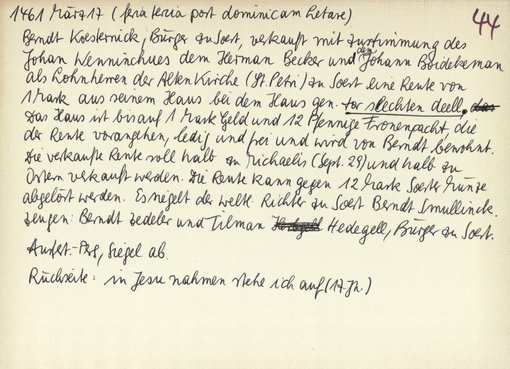 1461 März 17 (feria tercia post dominicam Letare)
44
Berndt Koesternick, Bürger zu Soest, verkauft mit Zustimmung des
Johan Wenninchues dem Herman Becker und dem Johann Boideksman
als Lohnherren der Alten Kirche (St. Petri) zu Soest eine Rente von
1 Mark aus seinem Haus bei dem Haus gen. tor slechten deell.
Das Haus ist bis auf 1 Mark Geld und 12 Pfennige Fronenpacht, die
der Rente vorangehen, ledig und frei und wird von Berndt bewohnt.
Die verkaufte Rente soll halb zu Michaelis (Sept. 29) und halb zu
Ostern verkauft werden. Die Rente kann gegen 12 Mark Soester Münze
abgelöst werden. Es siegelt der weltl. Richter zu Soest Berndt Smullinck.
Zeugen: Berndt Zedeler und Tilman Hedegell, Bürger zu Soest.
Ausfert.-Perg., Siegel ab.
Rückseite: in Jesu nahmen stehe ich auf (17. Jh.)